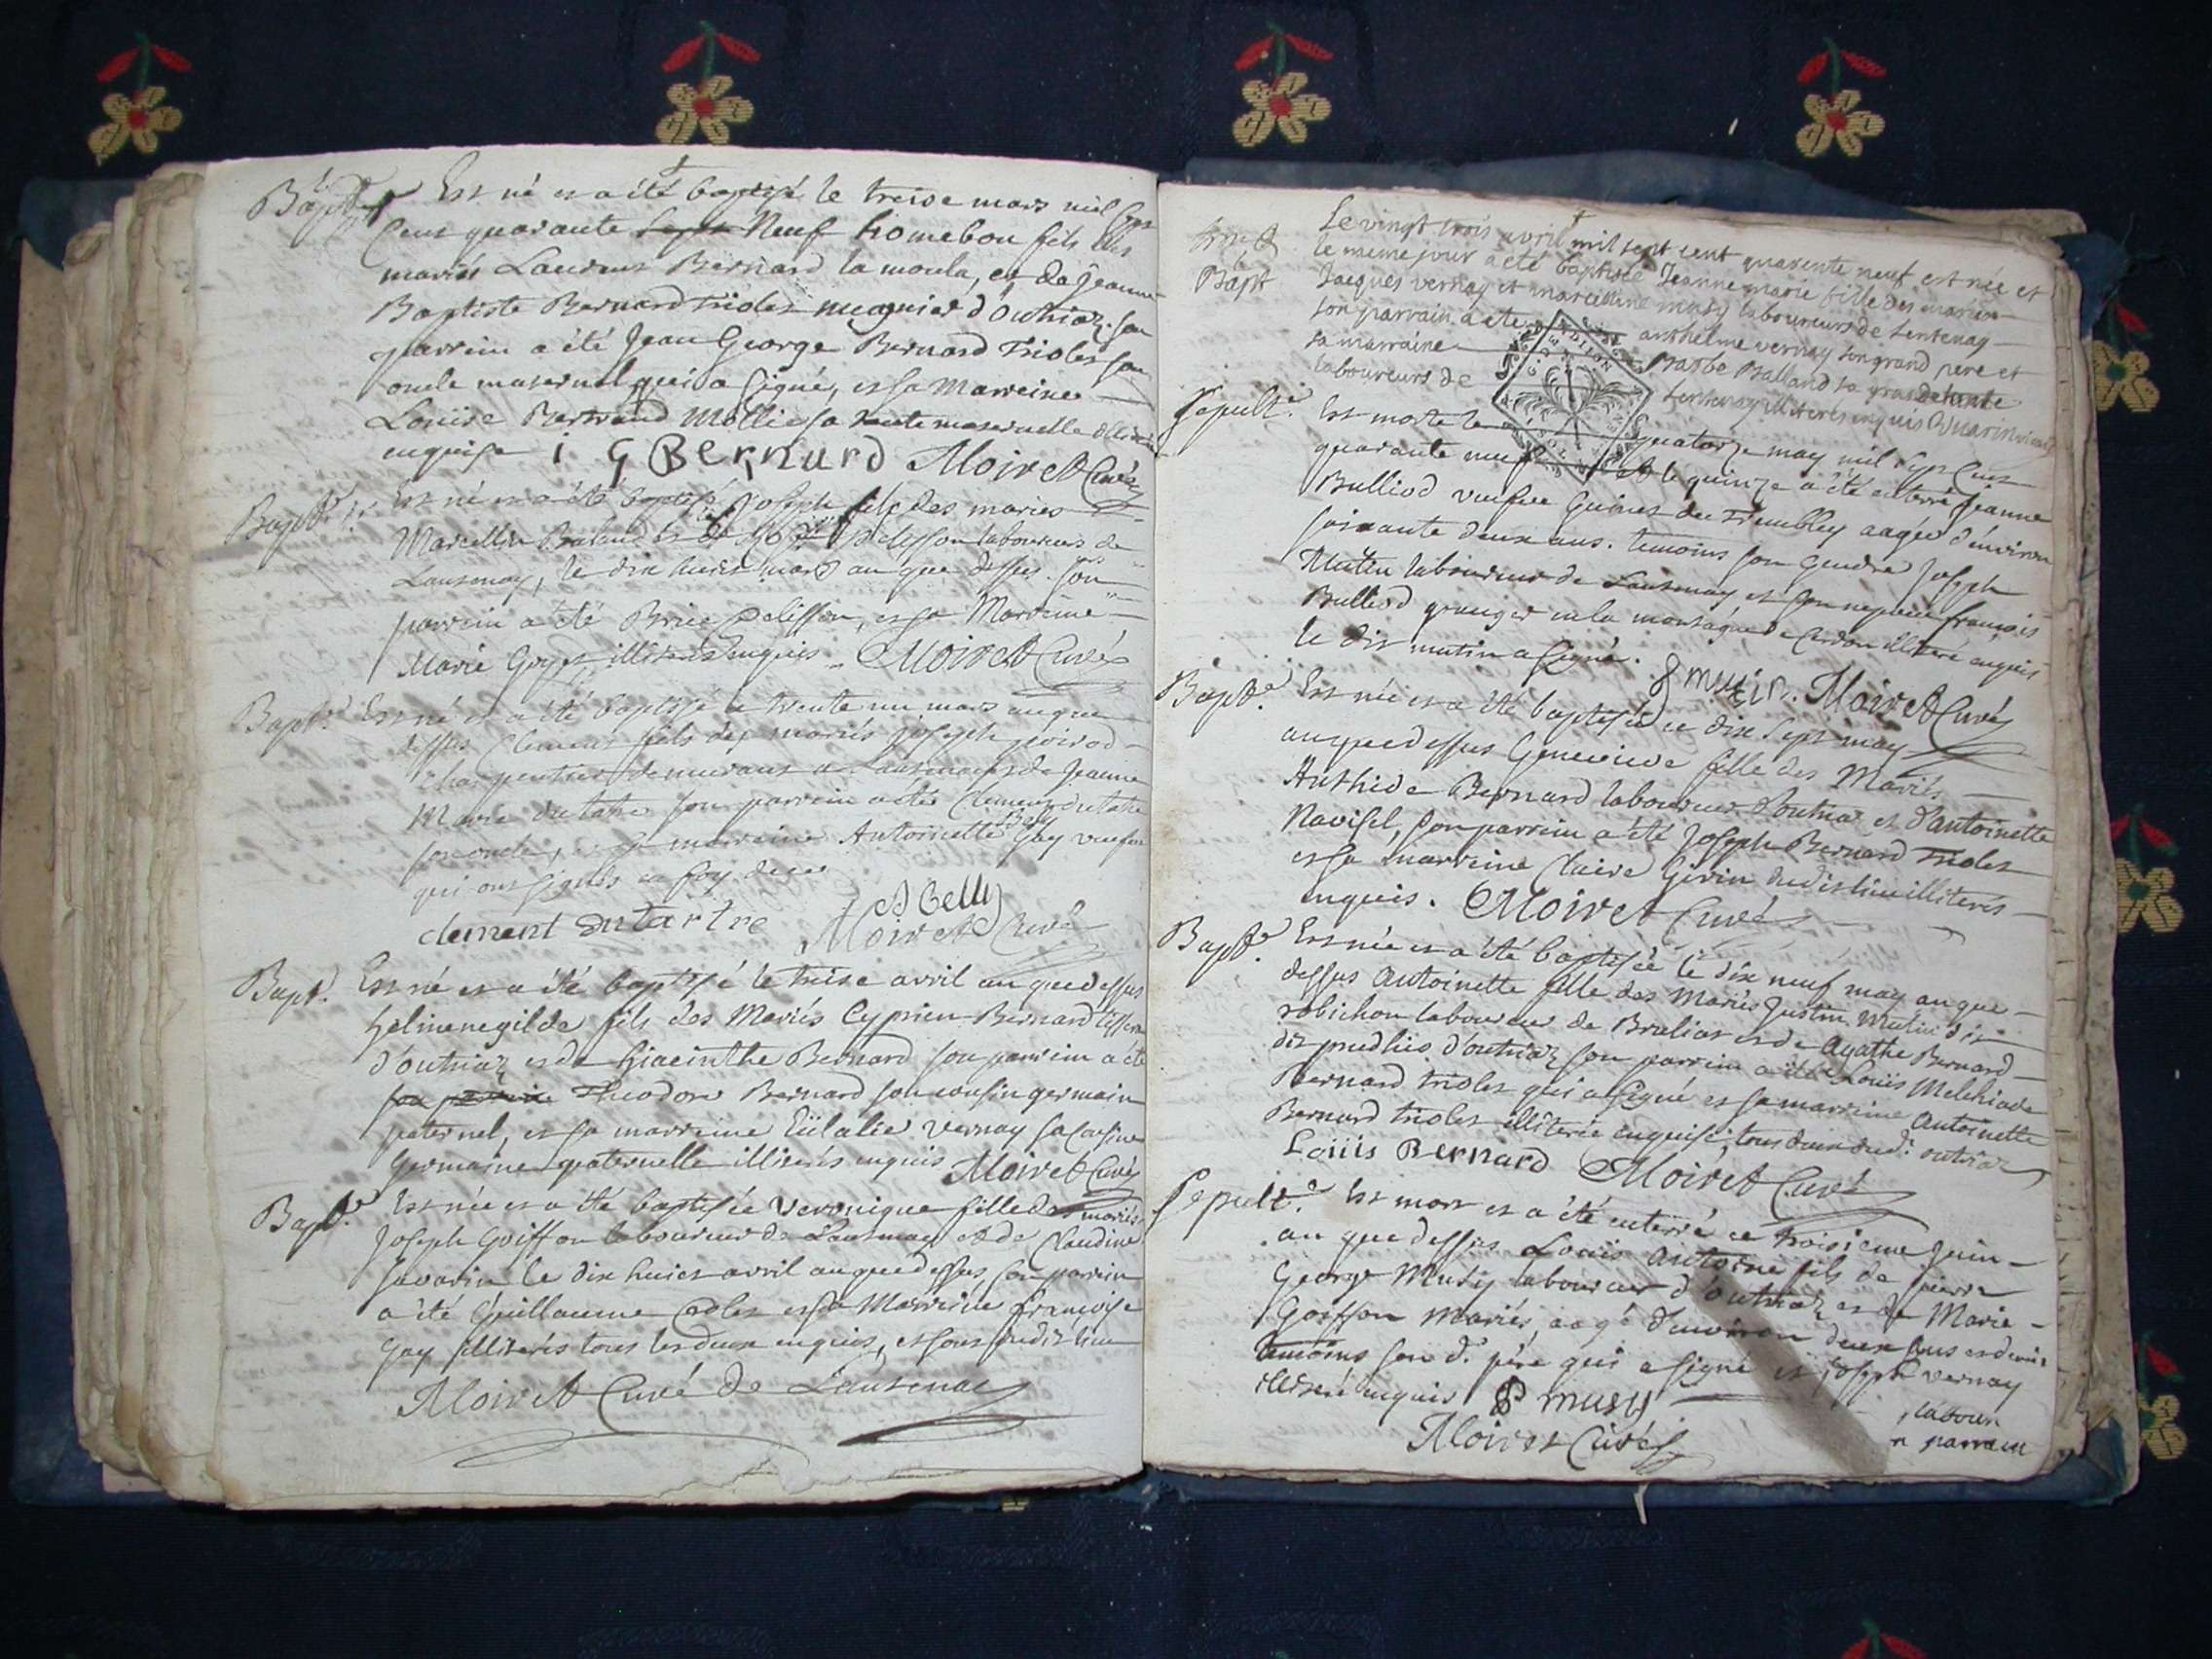 Bapt.e Est né et a été baptisé le treise mars mil sept
Cens quarante Neuf homebon fils des
mariés Laurens Bernard la moula, et de Jeanne
Baptiste Bernard triolet meunier d'outriaz. son
parrein a été Jean George Bernard Triolet son
oncle maternel qui a signé, et sa Marreine
Louise Bertrand Mollie sa tante maternelle
enquise i G BERNARD Moiret Curé
Bapt.e Est né et a été baptisé Joseph fils des mariés
Marcellin Baland et de pelisson laboureurs de
Lantenay, le dix huit mars an que dessus. son
parrein a été Brice Pelisson, et sa Marreine
Marie Goyet illiterés enquis. Moiret Curé
Bapt.e Est né et a été baptisé le trente un mars an que
dessus Clement fils des mariés Joseph poirod
charpentier demeurant a Lantenay et de Jeanne
Marie dutatre son parrein a été Clement dutatre
son oncle, et sa marreine Antoinette Gay veufve Bely
qui ont signés en foy de ce
clement dutartre A Belly
Moiret Curé
Bapt. Est né et a été baptisé le treise avril an que dessus
helmenegilde fils des Mariés Cyprien Bernard tisseran
d'outriaz et de hiacinthe Bernard son parrein a été
son parrein Theodore Bernard son cousin germain
paternel, et sa marreine Eülalie Vernay sa cousine
Germaine paternelle illiterés enquis Moiret Curé
Bapt.e Est née et a été baptisée Veronique fille des mariés
Joseph Goiffon laboureur de Lantenay et de Claudine
Savarin le dix huict avril an que dessus, son parrein
a été Guillaume et sa Marreine françoise
Gay illiterés tous les deux enquis, et sont dudit lieu
Moiret Curé de Lantenay
Le vingt trois avril mil sept cent quarente neuf est née et
Bapt le meme jour a été baptisée Jeanne marie fille des mariés
Jacques vernay et marcelline musy laboureurs de Lentenay
son parrain a ete anthelme vernay son grand pere et
sa marraine Barbe Balland sa grande tante
laboureurs de Lentenay illiterés enquis Guarin vicaire
Sepult.e Est morte le quatorze may mil sept Cens
quarante neuf et le quinze a été enterré Jeanne
Bulliod veufve Guinet du Trembley aagée d'environ
soixante deux ans. temoins son Gendre Joseph
Mutin laboureur de Lantenay et son nepveu françois
Bulliod granger en la montagne de Cerdon illiteré enquis
le dit mutin a signé. J mutin. Moiret Curé
Bapt.e Est née et a été baptisée ce dix sept may
an que dessus Genevieve fille des Mariés
Anthide Bernard laboureur d'outriaz et d'antoinette
Ravisel, son parrein a été Joseph Bernard Triolet
et sa marreine Claire Girin dudit lieu illiterés
enquis. Moiret Curé
Bapt.e Est née et a été baptisée le dix neuf may an que
dessus Antoinette fille des Mariés Justin Mutin dit
robichon laboureur de Bralias et de Agathe Bernard
dit predlüs d'outriaz son parrein a été Louis Melchiade
Bernard triolet qui a signé et sa marreine Antoinette
Bernard triolet illiterée enquise, tous deux dud. outriaz
Loüis BERNARD Moiret Curé
Sepult.e Est mort et a été enterré ce troisieme Juin
an que dessus Louis Antoine fils de pierre
George Musy laboureur d'outriaz et de Marie
Goiffon Mariés, aagé d'environ deux ans et demi
temoins son d. père qui a signé et Joseph vernay
illiteré enquis P musy
Moiret Curé
labour
n parrein